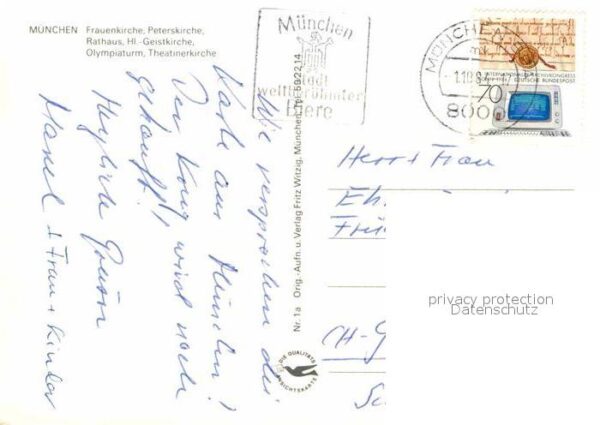 MÜNCHEN Frauenkirche, Peterskirche,
Rathaus, Hl.-Geistkirche,
Olympiaturm, Theatinerkirche
München
Stadt
weltberühmter
Biere
MÜNCHEN
-1.10.8
8000
INTERNATIONALER ARCHIVKONGRESS
DEUTSCHE BUNDESPOST
70
Wie versprochen die
Karte aus München!
Der Korg wird noch
gekauft!
Herzliche Grüsse
+ Frau + Kinder
Nr. 1a Orig.-Aufn. u. Verlag Fritz Witzig, München, Tel. 592214
DIE QUALITÄTS
ANSICHTSKARTE
Herr + Frau
Eh
Frü
CH-G
privacy protection
Datenschutz